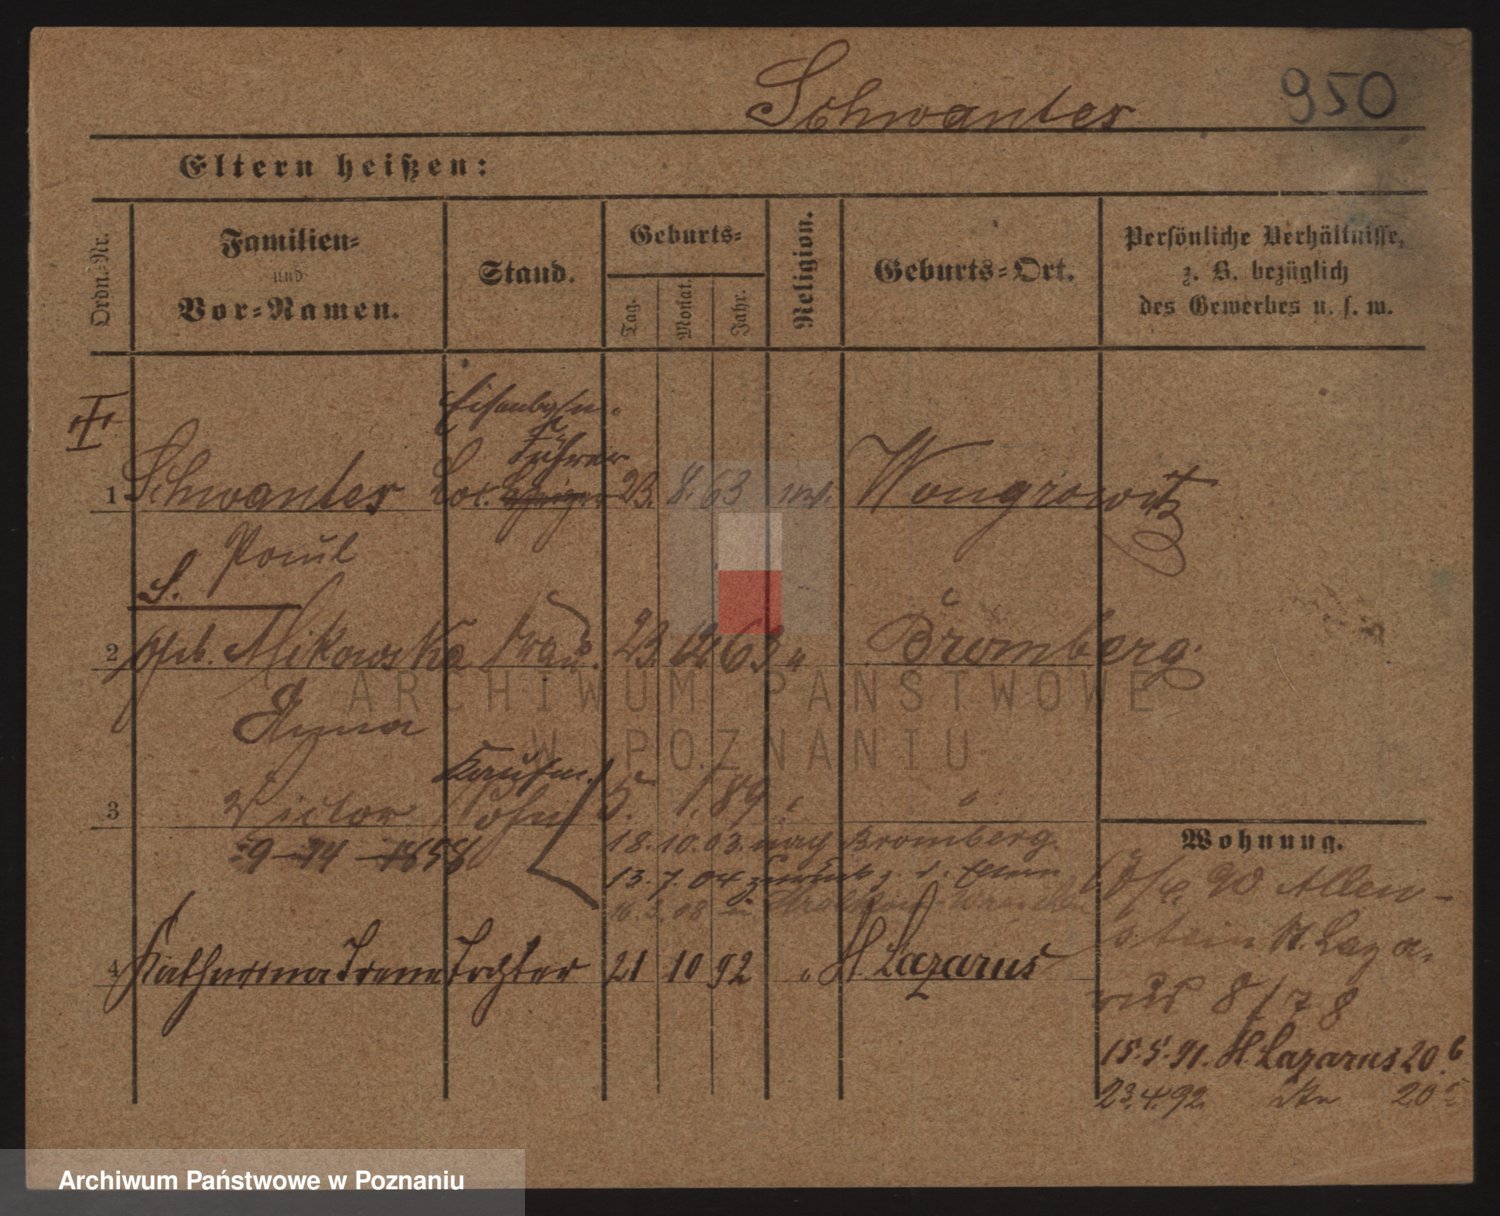 Schwantes 950
Eltern heißen:
Ordn.-Nr.
Familien-
und
Vor-Namen.
Stand.
Geburts-
Tag.
Monat.
Jahr.
Religion.
Geburts-Ort.
Persönliche Verhältnisse,
z. B. bezüglich
des Gewerbes u. s. w.
Führer
1 Schwantes Lok. 23. 8. 63 Wongrowitz
Paul
S.
2 geb. Mikowska Frau. 23. 12 63 " Bromberg.
Anna
Kaufm.
3 Victor Sohn 5. 1. 89 " "
18. 10. 03. nach Bromberg.
13. 7. 04 zurück z. d. Eltern
16. 3. 08
4 Katharina Irene Tochter 21 10 92 " St Lazarus
Wohnung.
90 Allen-
stein St. Laza-
rus 8/78
15. 5. 91. St Lazarus 20.6
23. 4. 92. 20
ARCHIWUM PAŃSTWOWE
W POZNANIU
Archiwum Państwowe w Poznaniu